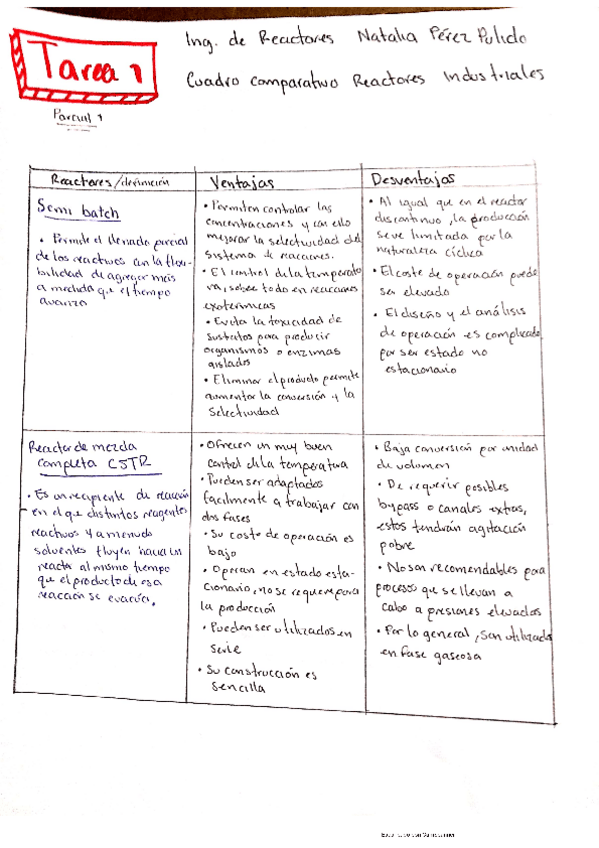 Tarea 1
Ing. de Reactores Natalia Pérez Pulido
Cuadro Comparativo Reactores Industriales
Parcial 1
Reactores/definición
Ventajas
Desventajas
Semi batch
• Permite el llenado parcial
de los reactivos con la flexi-
bilidad de agregar más
a medida que el tiempo
avanza
• Permiten controlar las
concentraciones y con ello
mejorar la selectividad del
sistema de reacciones.
• El control de la temperatu
ra, sobre todo en reacciones
exotérmicas
• Evita la toxicidad de
sustratos para producir
organismos o enzimas
aislados
• Eliminar el producto permite
aumentar la conversión y la
Selectividad
• Al igual que en el reactor
discontinuo, la producción
se ve limitada por la
naturaleza cíclica
• El coste de operación puede
ser elevado
• El diseño y el análisis
de operación es complicado
por ser estado no
estacionario
Reactor de mezcla
completa CSTR
• Es un recipiente de reacción
en el que distintos reagentes
reactivos y a menudo
solventes fluyen hacia un
reactor al mismo tiempo
que el producto de esa
reacción se evacúa.
• Ofrecen un muy buen
control de la temperatura
• Pueden ser adaptados
facilmente a trabajar con
dos fases
• Su costo de operación es
bajo
• Operan en estado esta-
cionario, no se requiere para
la producción
• Pueden ser utilizados en
serie
• Su construcción es
sencilla
• Baja conversión por unidad
de volumen
• De requerir posibles
bypass o canales extras,
estos tendrán agitación
pobre
• No son recomendables para
procesos que se llevan a
cabo a presiones elevadas
• Por lo general, son utilizados
en fase gaseosa